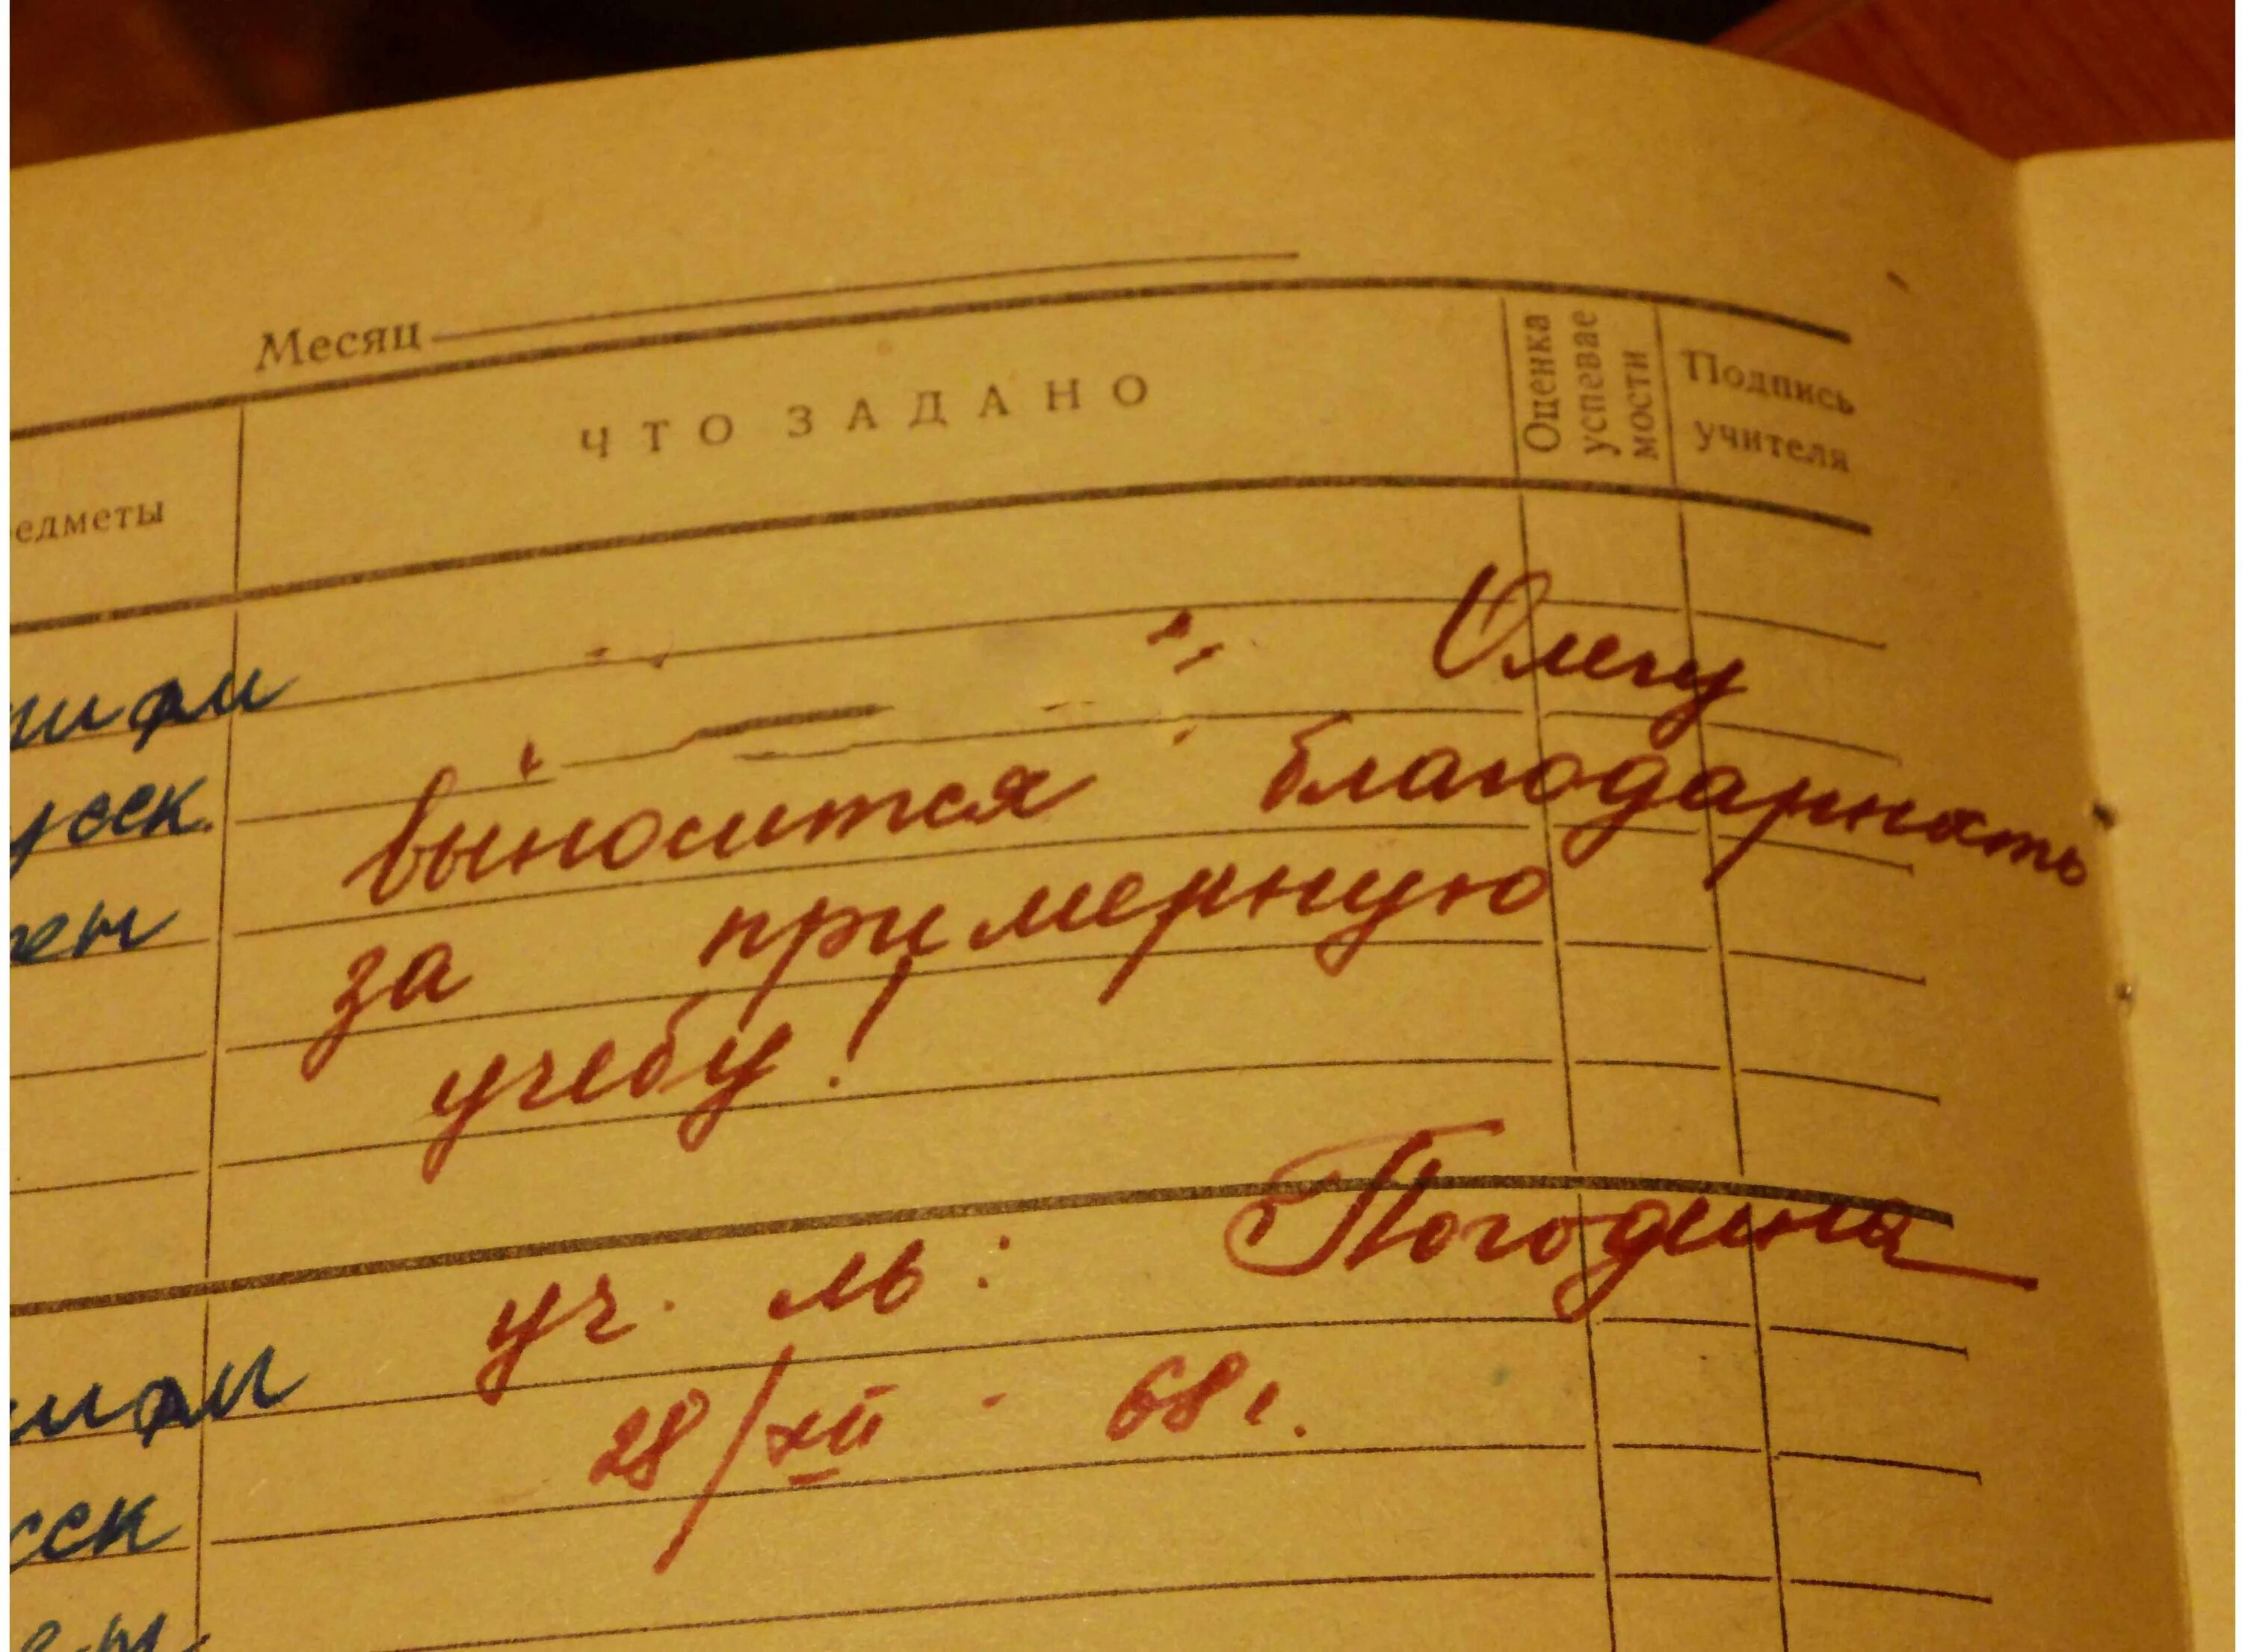 Месяц
едметы
ЧТО ЗАДАНО
Оценка
успевае
мости
Подпись
учителя
Олегу
выносится благодарность
за примерную
учебу!
уч. ль: Погодина
28/XII - 68 г.
ифм
усск.
ен
ифм
сск